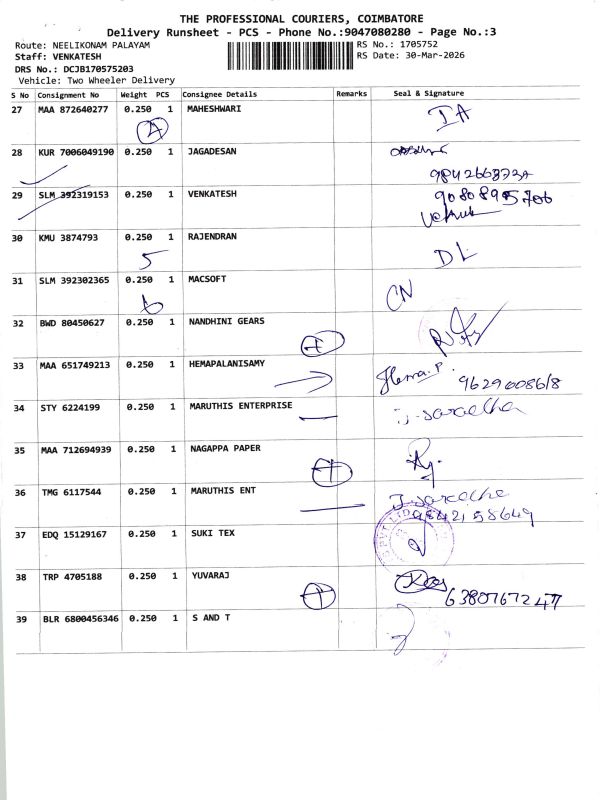 THE PROFESSIONAL COURIERS, COIMBATORE
Delivery Runsheet - PCS - Phone No.:9047080280 - Page No.:3
Route: NEELIKONAM PALAYAM RS No.: 1705752
Staff: VENKATESH RS Date: 30-Mar-2026
DRS No.: DCJB170575203
Vehicle: Two Wheeler Delivery
S No Consignment No Weight PCS Consignee Details Remarks Seal & Signature
27 MAA 872640277 0.250 1 MAHESHWARI IA
A
28 KUR 7006049190 0.250 1 JAGADESAN
29 SLM 392319153 0.250 1 VENKATESH
30 KMU 3874793 0.250 1 RAJENDRAN DL
5
31 SLM 392302365 0.250 1 MACSOFT CN
6
32 BWD 80450627 0.250 1 NANDHINI GEARS
33 MAA 651749213 0.250 1 HEMAPALANISAMY Hema.P. 9629608618
34 STY 6224199 0.250 1 MARUTHIS ENTERPRISE J. Saraelha
35 MAA 712694939 0.250 1 NAGAPPA PAPER
36 TMG 6117544 0.250 1 MARUTHIS ENT J. Saraelha
9842158649
37 EDQ 15129167 0.250 1 SUKI TEX
PVT LTD
38 TRP 4705188 0.250 1 YUVARAJ
6380767247
39 BLR 6800456346 0.250 1 S AND T